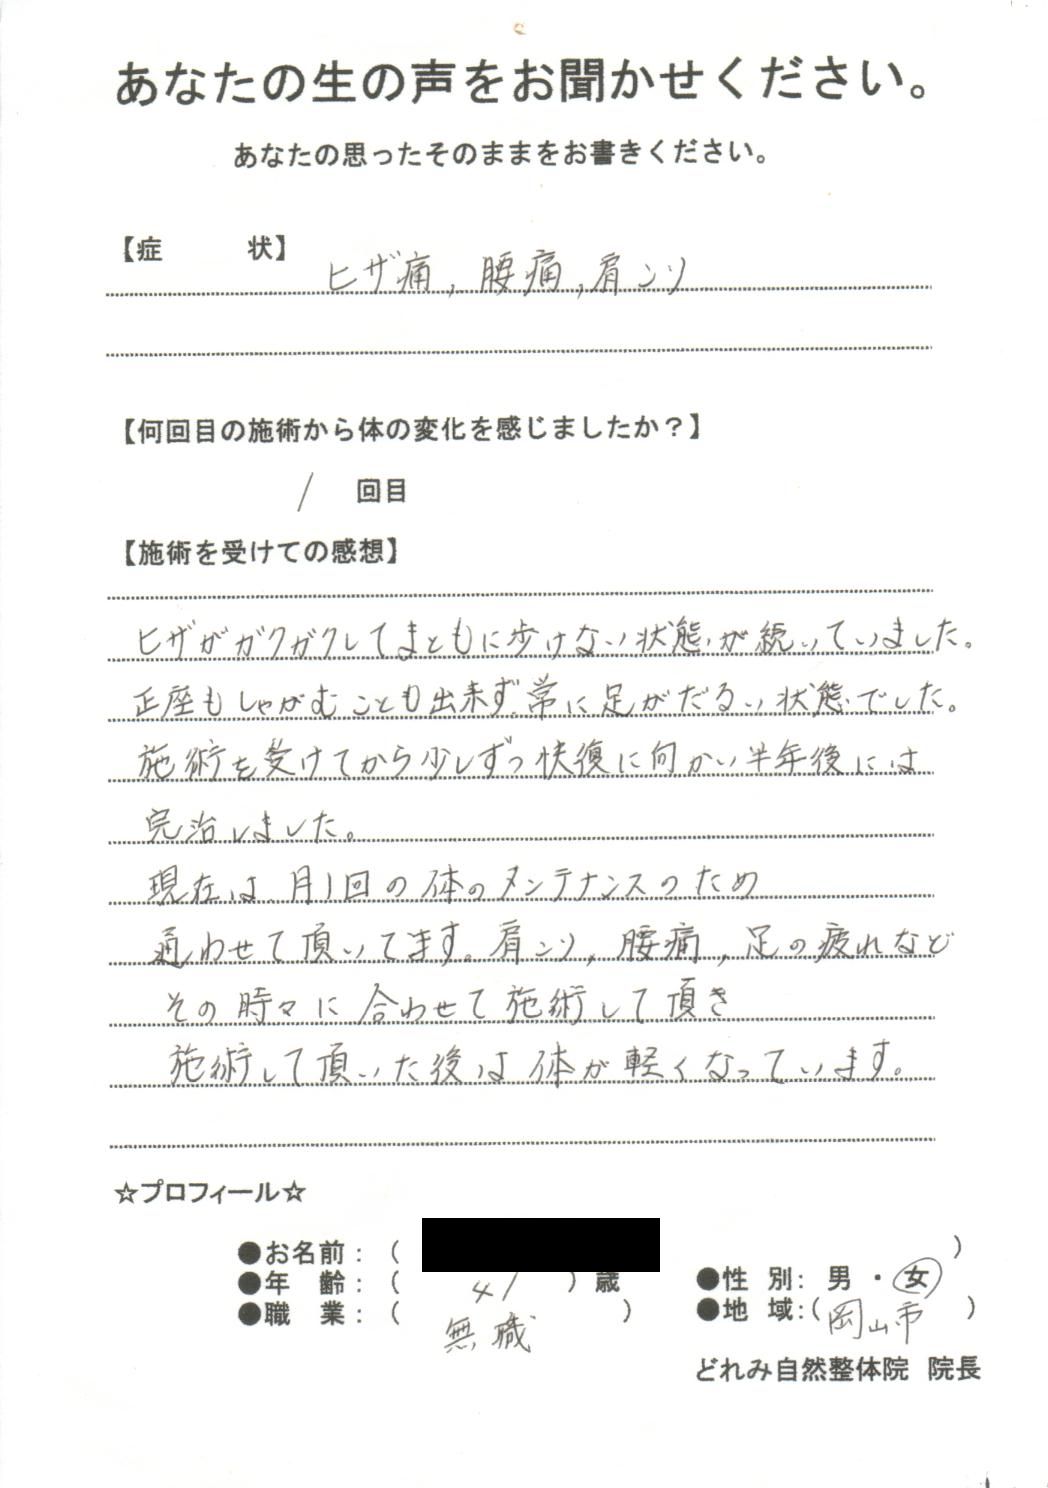 あなたの生の声をお聞かせください。
あなたの思ったそのままをお書きください。
【症　　状】
ヒザ痛，腰痛，肩コリ
【何回目の施術から体の変化を感じましたか？】
1 回目
【施術を受けての感想】
ヒザがガクガクしてまともに歩けない状態が続いていました。
正座もしゃがむことも出来ず、常に足がだるい状態でした。
施術を受けてから少しずつ快復に向かい半年後には
完治しました。
現在は、月1回の体のメンテナンスのため
通わせて頂いてます。肩コリ，腰痛，足の疲れなど
その時々に合わせて施術して頂き
施術して頂いた後は体が軽くなっています。
☆プロフィール☆
●お名前：（　　　）
●年　齢：（ 41 ）歳 ●性　別：男・女
●職　業：（ 無職 ） ●地　域：（岡山市）
どれみ自然整体院　院長